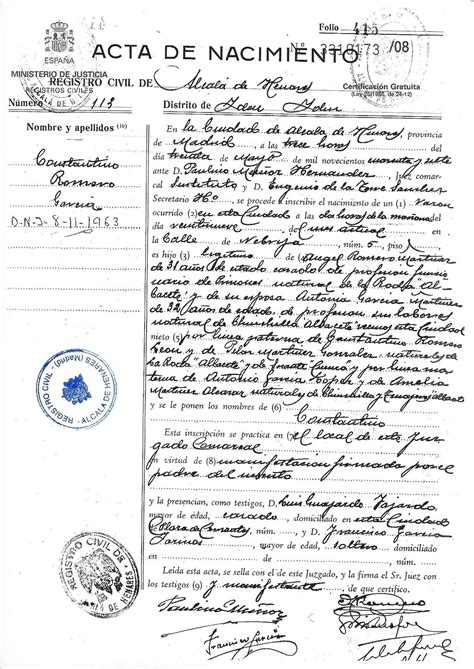 Folio 415
ESPAÑA
ACTA DE NACIMIENTO
Nº 3318173 /08
MINISTERIO DE JUSTICIA
REGISTROS CIVILES
REGISTRO CIVIL DE Alcalá de Henares
Certificación Gratuita
(Ley 25/1986, de 24-12)
Número 113
Distrito de Idem Idem
Nombre y apellidos (10)
Constantino
Romero
García
D-N-I-8-11-1963
En la Ciudad de Alcalá de Henares, provincia
de Madrid, a las trece horas
del treinta de Mayo de mil novecientos cuarenta y siete
ante D. Paulino Muñoz Hernandez, Juez comarcal
Sustituto y D. Eugenio de la Torre Sanchez
Secretario Hº, se procede a inscribir el nacimiento de un (1) Varon
ocurrido (2) en esta Ciudad a las dos horas de la mañana
día veintinueve del mes actual en
la Calle de Nebrija, núm. 5, piso
es hijo (3) legitimo de Angel Romero Martinez
de 31 años de estado casado de profesion funcio
nario de Prisiones natural de La Roda Al-
bacete y de su esposa Antonia García Martinez
de 32 años de edad de profesion sus labores
natural de Chinchilla Albacete vecinos esta Ciudad
nieto (5) por linea paterna de Constantino Romero
y de Pilar Martinez Gonzalez, naturales de
La Roda Albacete y de Cuenca y por linea ma
terna de Antonio García y de Amelia
Martinez naturales de Chinchilla y Albacete
y se le ponen los nombres de (6)
Constantino
Esta inscripción se practica en (7) el local de este Juz
gado Comarcal
en virtud de (8) manifestacion firmada por el
padre del inscrito
y la presencian, como testigos, D. Luis Guajardo Fajardo
mayor de edad, casado, domiciliado en esta Ciudad
Plaza de Cervantes, núm. y D. Francisco García
Fariños, mayor de edad, soltero domiciliado
en , núm.
Leída esta acta, se sella con el de este Juzgado, y la firma el Sr. Juez con
los testigos (9) y manifestante, de que certifico.
Paulino Muñoz
Francisco García
REGISTRO CIVIL - ALCALA DE HENARES (Madrid)
REGISTRO CIVIL DE
ALCALA DE HENARES